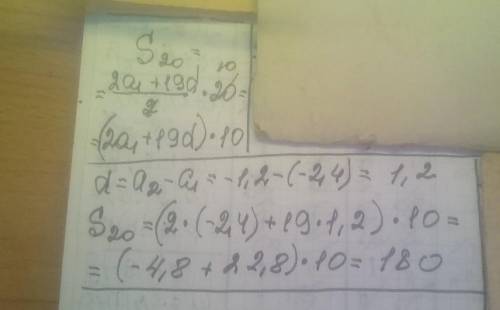 S₂₀ =
= (2a₁ + 19d)/2 · 20 10 =
= (2a₁ + 19d) · 10
d = a₂ - a₁ = -1,2 - (-2,4) = 1,2
S₂₀ = (2 · (-2,4) + 19 · 1,2) · 10 =
= (-4,8 + 22,8) · 10 = 180